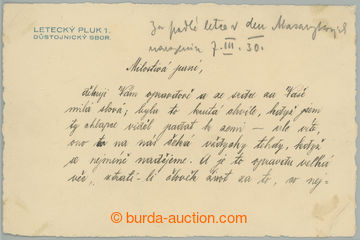 LETECKÝ PLUK 1.
DŮSTOJNICKÝ SBOR.
Za padlé letce v den Masarykových
narozenin 7. III. 30.
Milostivá paní,
děkuji Vám opravdově a ze srdce za Vaše
milá slova; byla to krutá chvíle, když jsem
ty chlapce viděl padat k zemi – kdo ví,
ono to na nás čeká vždycky tehdy, když
se nejméně nadějeme. A je to opravdu velká
věc, ztratí-li člověk život za to, co nej-
© burda-auction.com